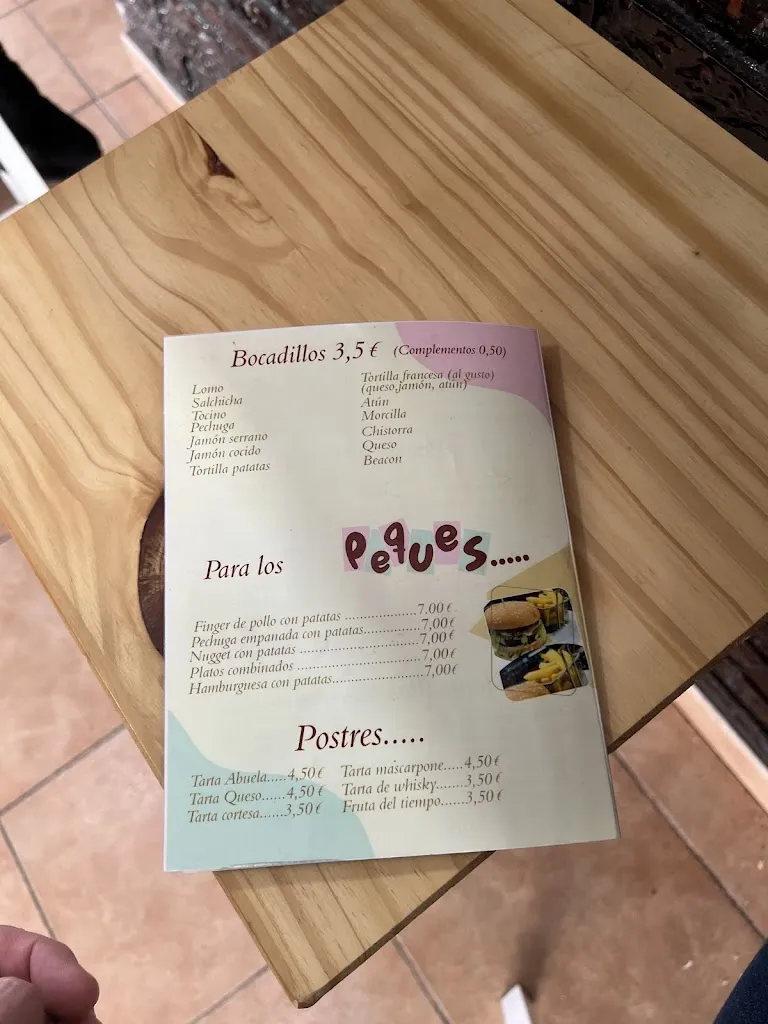 Bocadillos 3,5 € (Complementos 0,50)
Lomo
Salchicha
Tocino
Pechuga
Jamón serrano
Jamón cocido
Tortilla patatas
Tortilla francesa (al gusto)
(queso,jamón, atún)
Atún
Morcilla
Chistorra
Queso
Beacon
Para los Peques.....
Finger de pollo con patatas ...................7,00 €
Pechuga empanada con patatas...............7,00 €
Nugget con patatas ................................7,00 €
Platos combinados .................................7,00 €
Hamburguesa con patatas........................7,00 €
Postres.....
Tarta Abuela.....4,50 €
Tarta Queso......4,50 €
Tarta cortesa.......3,50 €
Tarta mascarpone.....4,50 €
Tarta de whisky.......3,50 €
Fruta del tiempo.......3,50 €